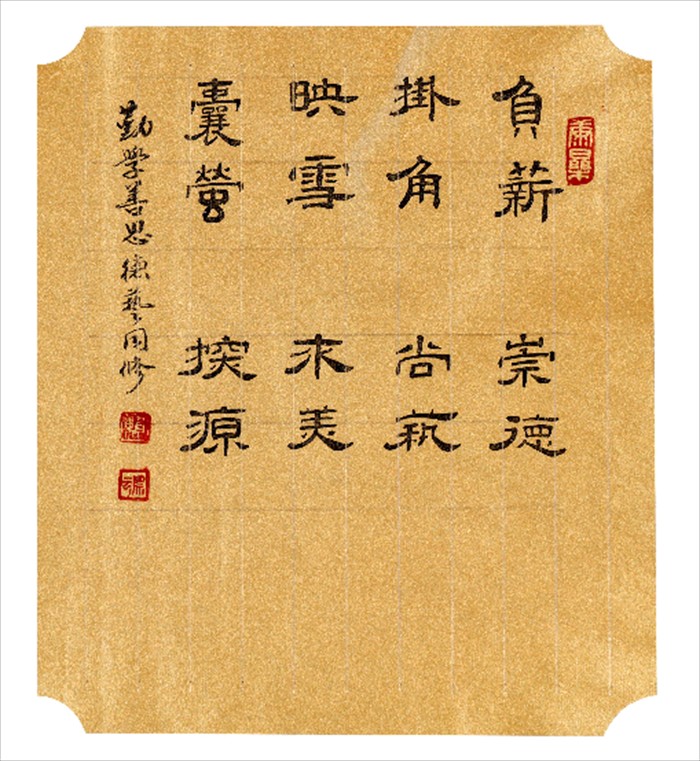 負薪
掛角
映雪
囊螢
崇德
尚萟
求美
探源
勤学善思德藝同修